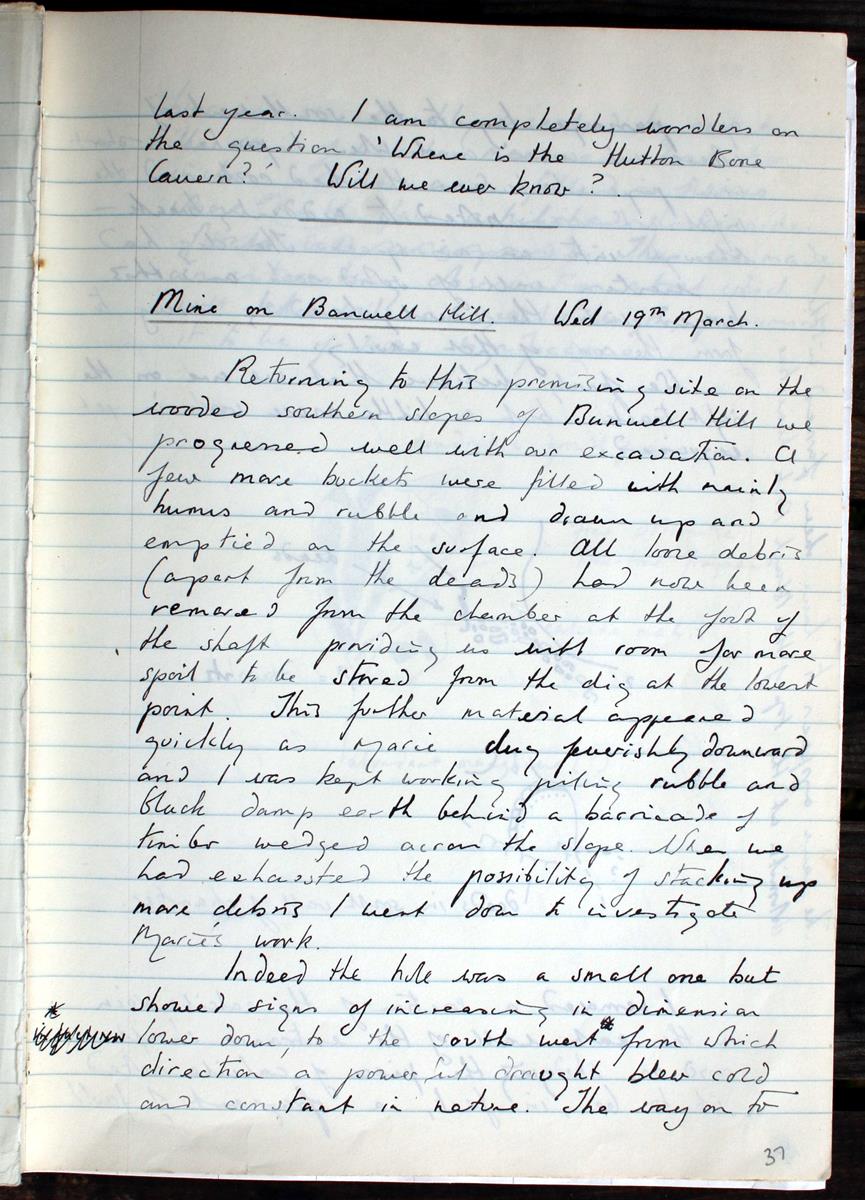 last year. I am completely wordless on
the question 'Where is the Hutton Bone
Cavern?' Will we ever know?
Mine on Banwell Hill. Wed 19th March.
Returning to this promising site on the
wooded southern slopes of Banwell Hill we
progressed well with our excavation. A
few more buckets were filled with mainly
humus and rubble and drawn up and
emptied on the surface. All loose debris
(apart from the deads) had now been
removed from the chamber at the foot of
the shaft providing us with room for more
spoil to be stored from the dig at the lowest
point. This further material appeared
quickly as Marie dug feverishly downward
and I was kept working piling rubble and
black damp earth behind a barricade of
timber wedged across the slope. When we
had exhausted the possibility of stacking up
more debris I went down to investigate
Marie's work.
Indeed the hole was a small one but
showed signs of increasing in dimension
* lower down, to the south west* from which
direction a powerful draught blew cold
and constant in nature. The way on to
37